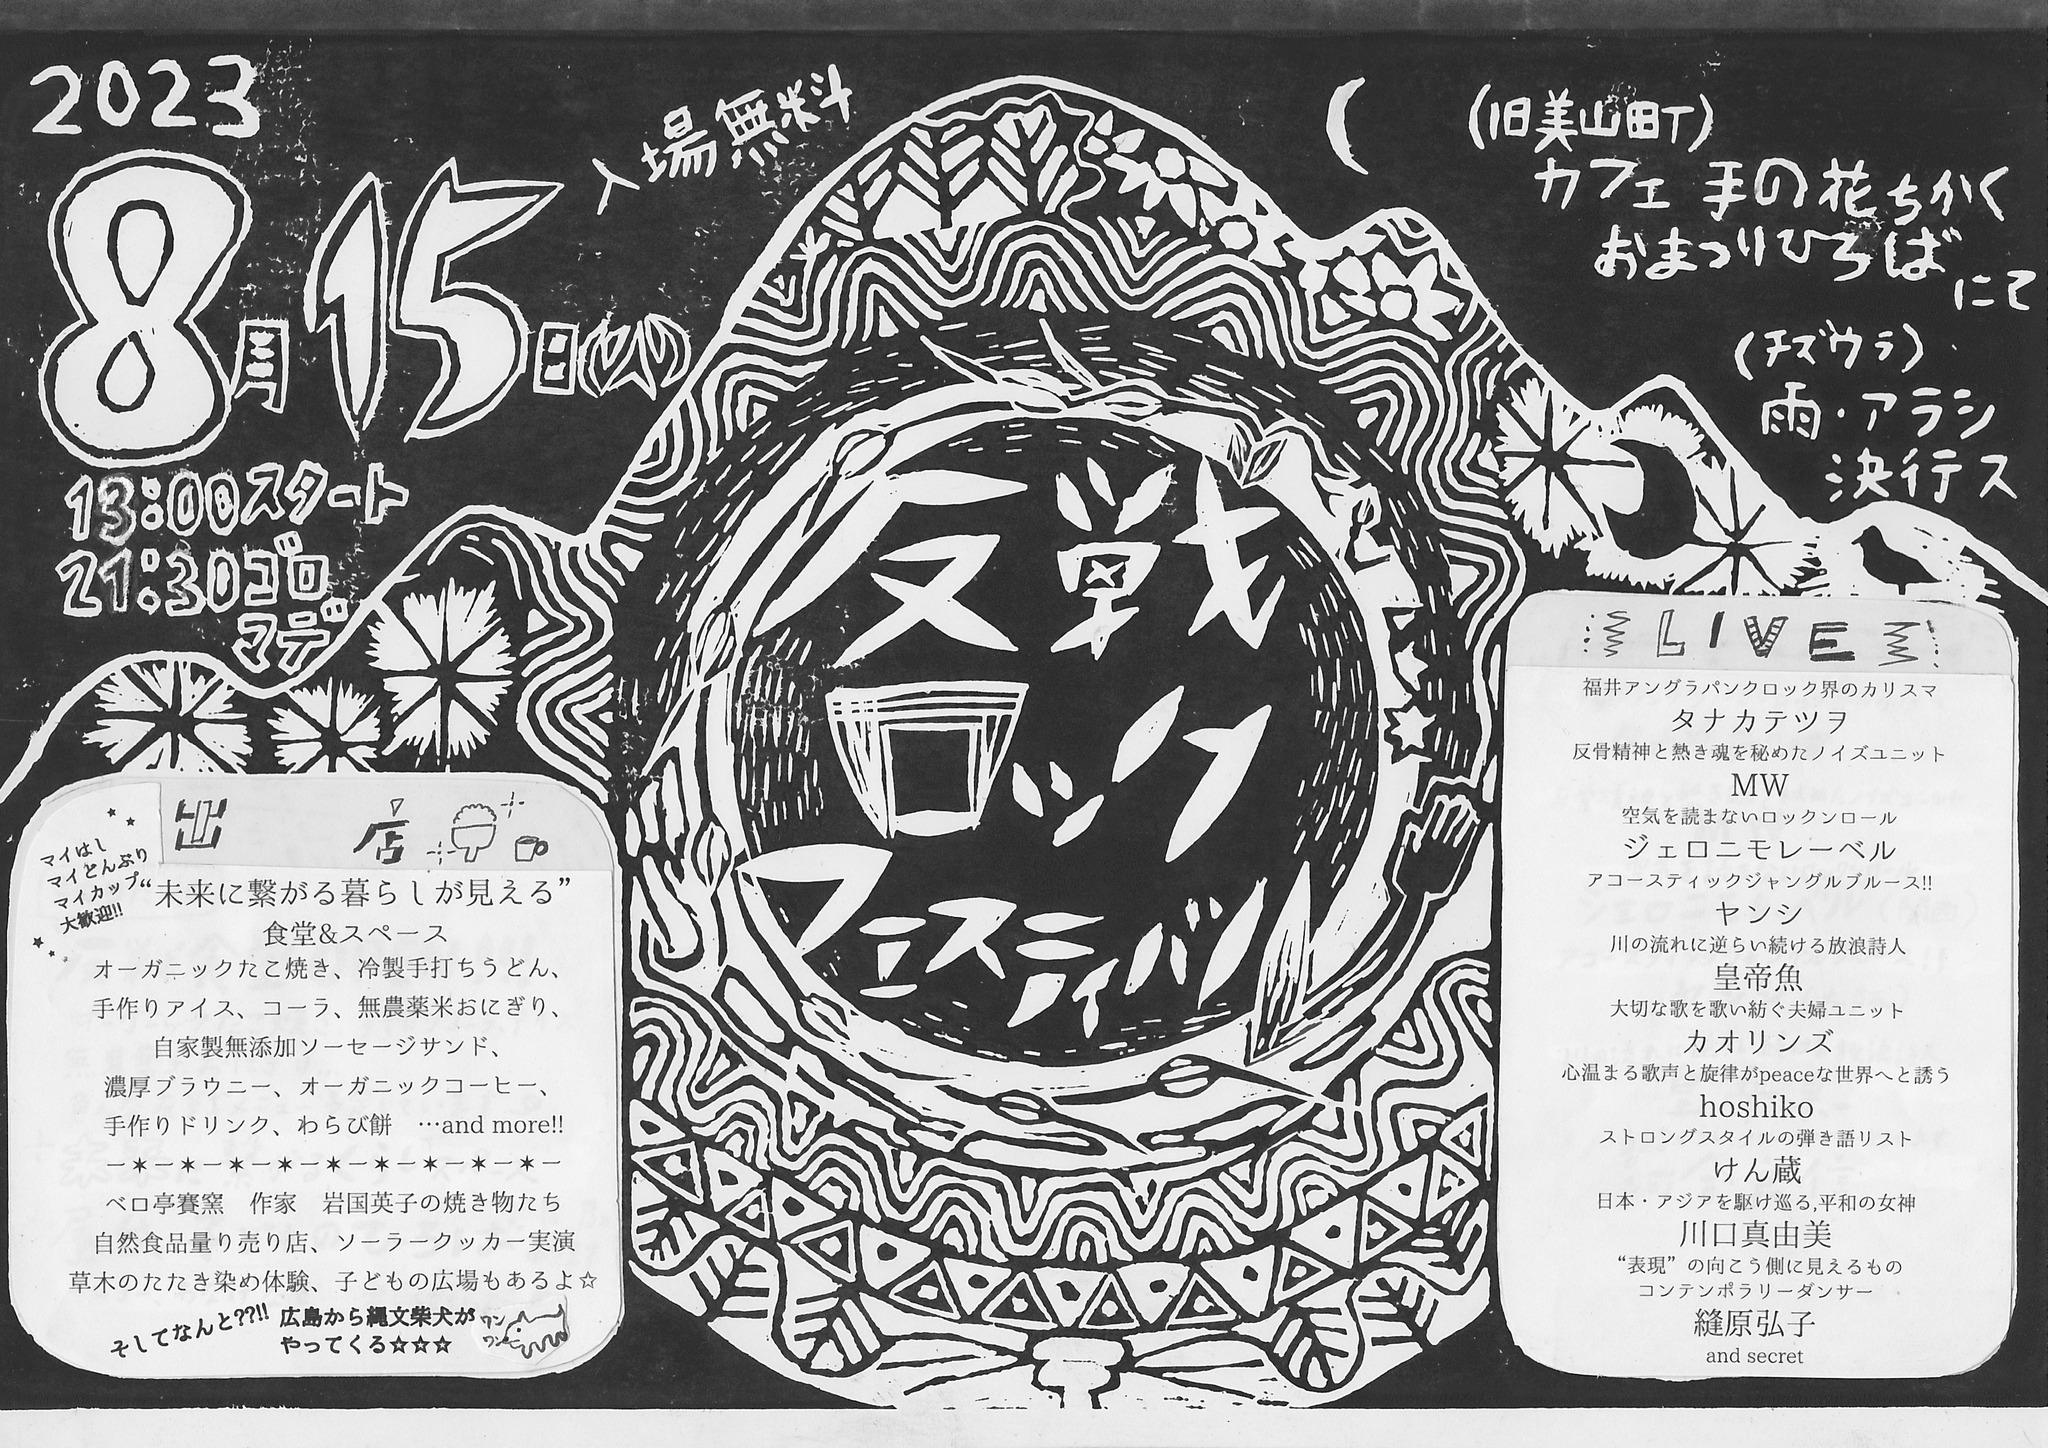 2023
8月15日(火)
入場無料
13:00スタート
21:30ゴロ
マデ
(旧美山町)
カフェ 手の花ちかく
おまつりひろば
にて
(チズウラ)
雨・アラシ
決行テス
反戦
ロック
フェスティバル
出店
マイはし
マイどんぶり
マイカップ
大歓迎!!
“未来に繋がる暮らしが見える”
食堂&スペース
オーガニックたこ焼き、冷製手打ちうどん、
手作りアイス、コーラ、無農薬米おにぎり、
自家製無添加ソーセージサンド、
濃厚ブラウニー、オーガニックコーヒー、
手作りドリンク、わらび餅　…and more!!
ー✶ー✶ー✶ー✶ー✶ー✶ー✶ー✶ー✶ー
ベロ亭賽窯　作家　岩国英子の焼き物たち
自然食品量り売り店、ソーラークッカー実演
草木のたたき染め体験、子どもの広場もあるよ☆
そしてなんと??!!
広島から縄文柴犬が
やってくる☆☆☆
ワン
ワン
LIVE
福井アングラパンクロック界のカリスマ
タナカテツヲ
反骨精神と熱き魂を秘めたノイズユニット
MW
空気を読まないロックンロール
ジェロニモレーベル
アコースティックジャングルブルース!!
ヤンシ
川の流れに逆らい続ける放浪詩人
皇帝魚
大切な歌を歌い紡ぐ夫婦ユニット
カオリンズ
心温まる歌声と旋律がpeaceな世界へと誘う
hoshiko
ストロングスタイルの弾き語リスト
けん蔵
日本・アジアを駆け巡る,平和の女神
川口真由美
“表現”の向こう側に見えるもの
コンテンポラリーダンサー
縫原弘子
and secret